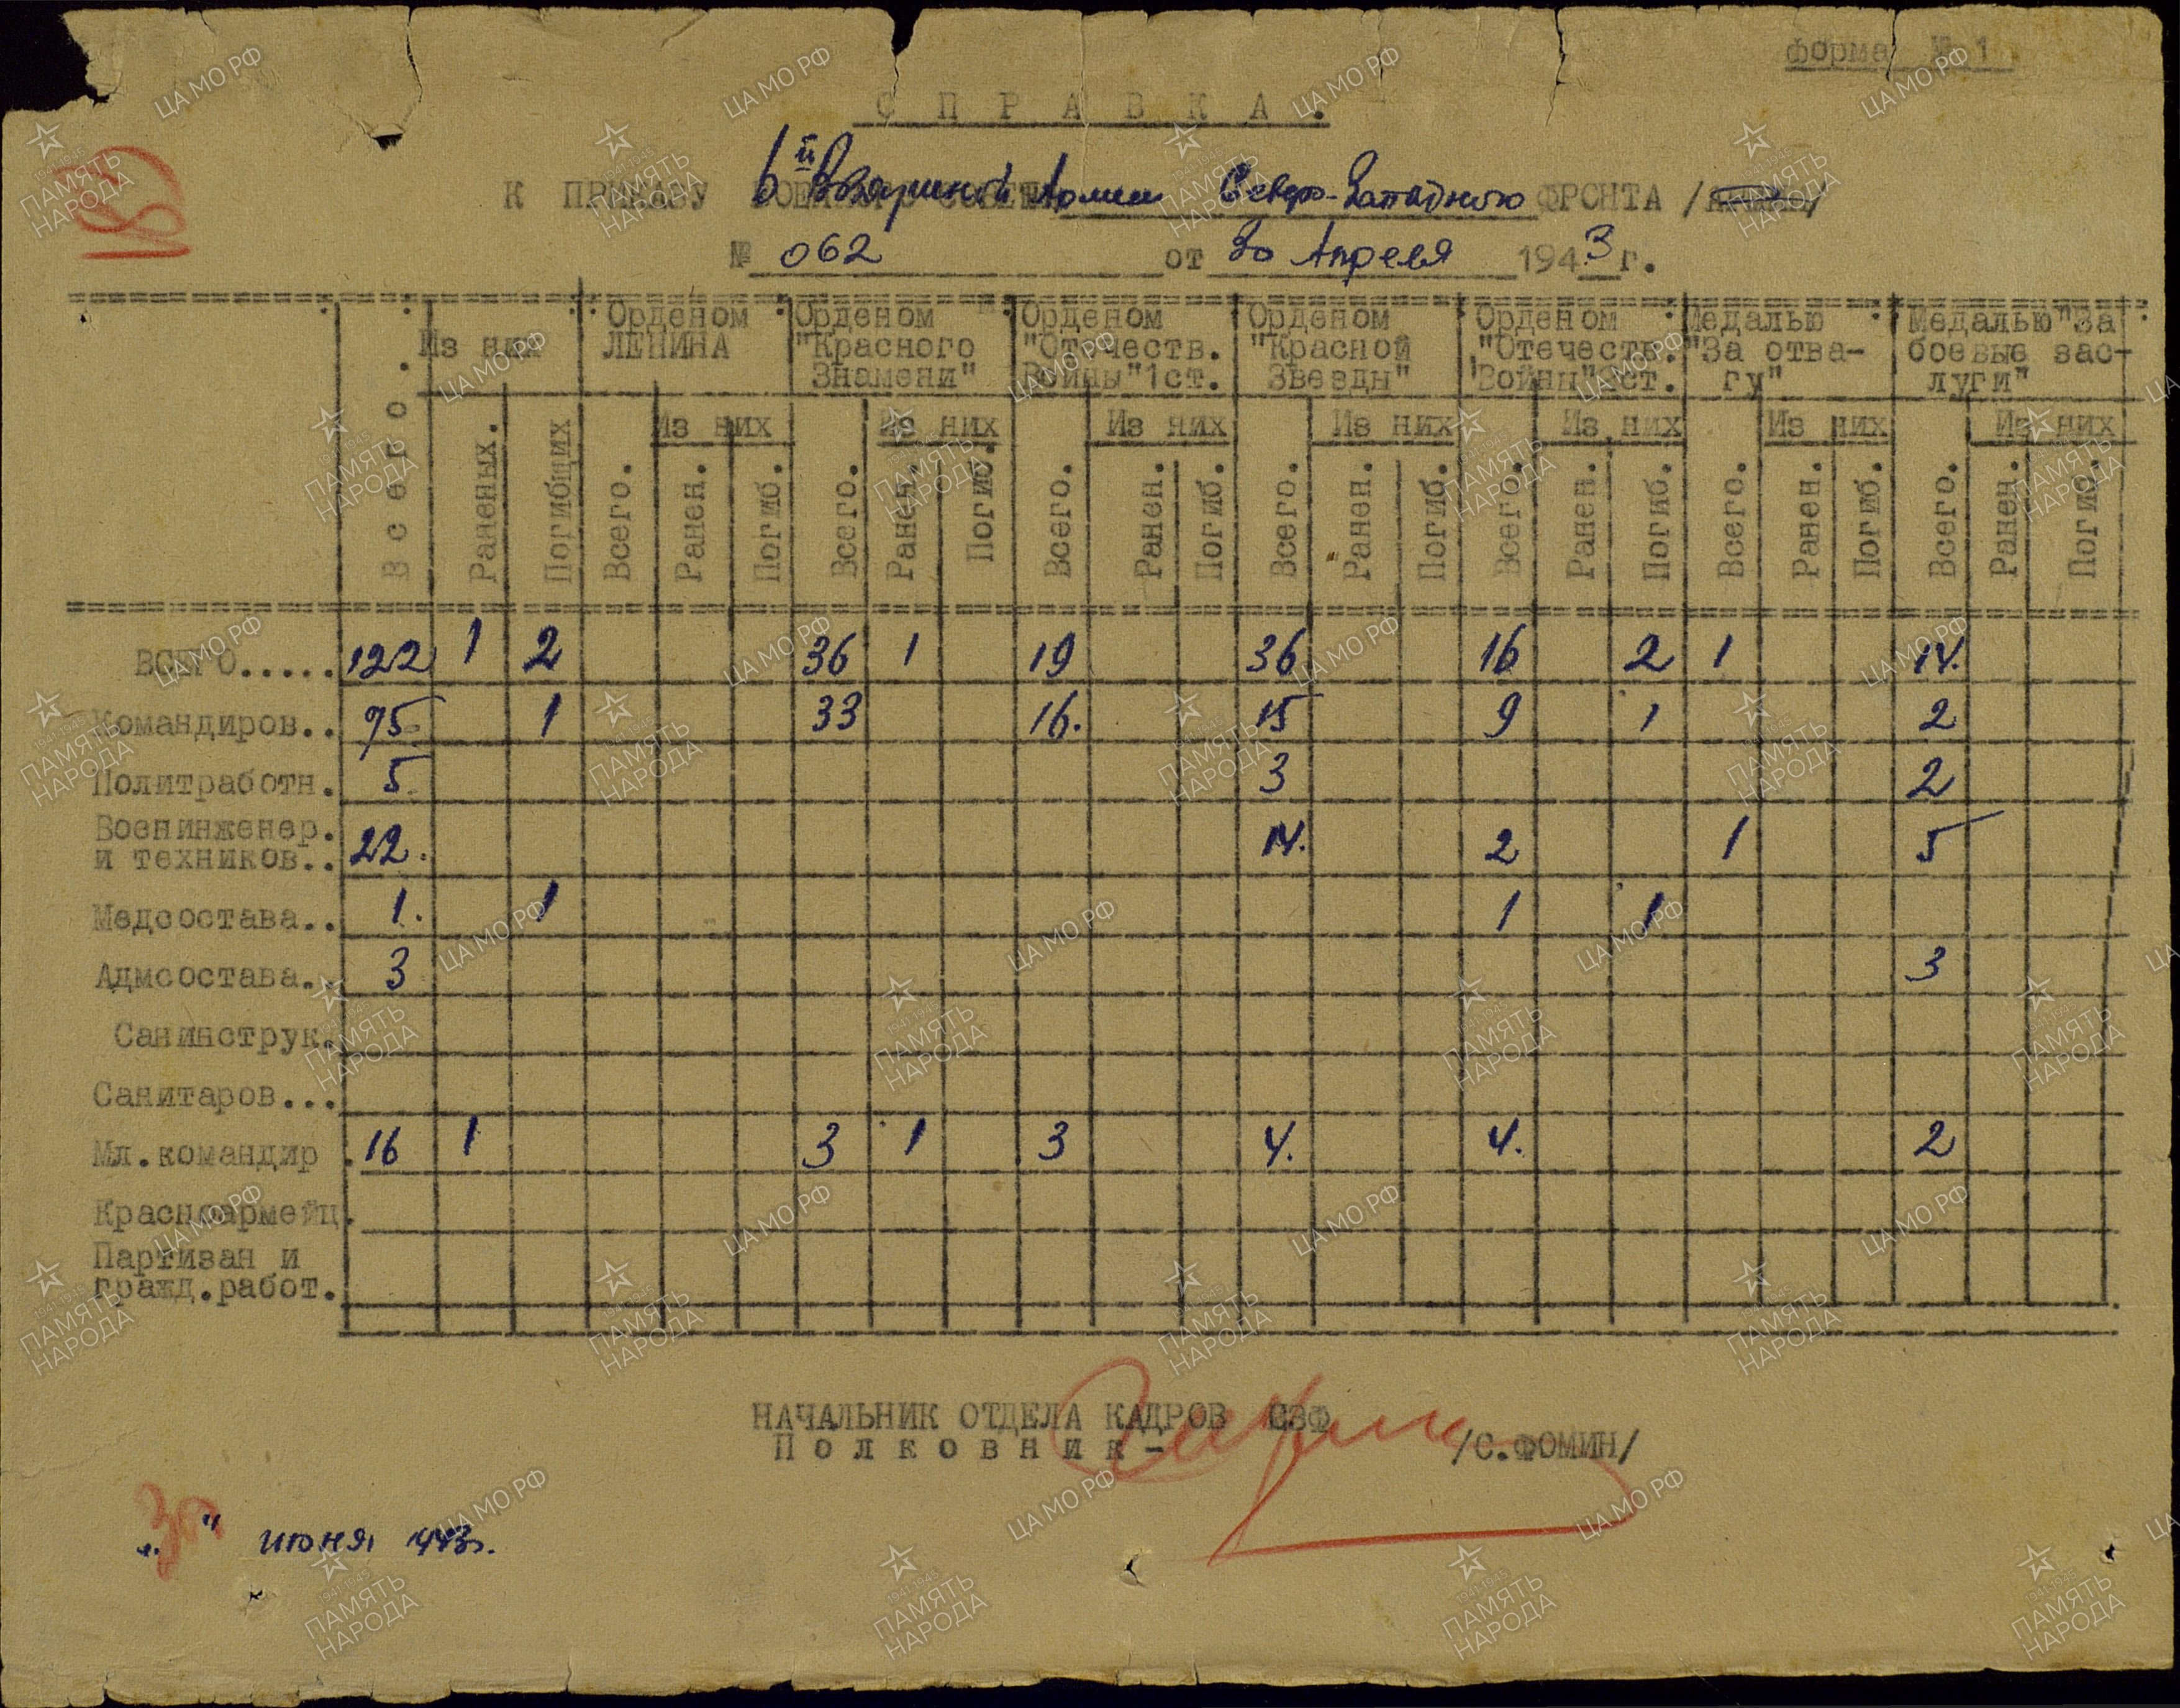 форма № 1
С П Р А В К А .
К ПРИКАЗУ 6й Воздушной Армии Северо-Западного ФРОНТА /АРМИИ/
№ 062 от 30 Апреля 1943 г.
Всего. Из них Орденом ЛЕНИНА Орденом "Красного Знамени" Орденом "Отечеств. Войны" 1ст. Орденом "Красной Звезды" Орденом "Отечеств. Войны" 2ст. Медалью "За отва-гу" Медалью "За боевые зас-луги"
Из них Из них Из них Из них Из них Из них Из них
Раненых. Погибших Всего. Ранен. Погиб. Всего. Ранен. Погиб. Всего. Ранен. Погиб. Всего. Ранен. Погиб. Всего. Ранен. Погиб. Всего. Ранен. Погиб. Всего. Ранен. Погиб.
ВСЕГО..... 122 1 2 36 1 19 36 16 2 1 14.
Командиров.. 75 1 33 16. 15 9 1 2
Политработн. 5 3 2
Военинженер.
и техников.. 22. 14. 2 1 5
Медсостава.. 1. 1 1 1
Адмсостава.. 3 3
Санинструк.
Санитаров...
Мл.командир . 16 1 3 1 3 4. 4. 2
Красноармейц.
Партизан и
гражд.работ.
НАЧАЛЬНИК ОТДЕЛА КАДРОВ СЗФ
Полковник- /С.ФОМИН/
"30" июня 1943г.
ЦА МО РФ
1941-1945
ПАМЯТЬ
НАРОДА